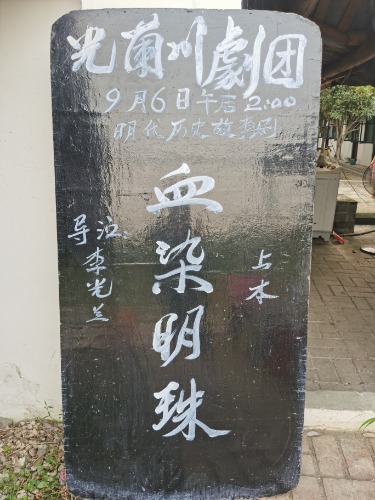 光蘭川劇团
9月6日午后2:00
明代历史故事剧
血染明珠
导演:
李光兰
上本